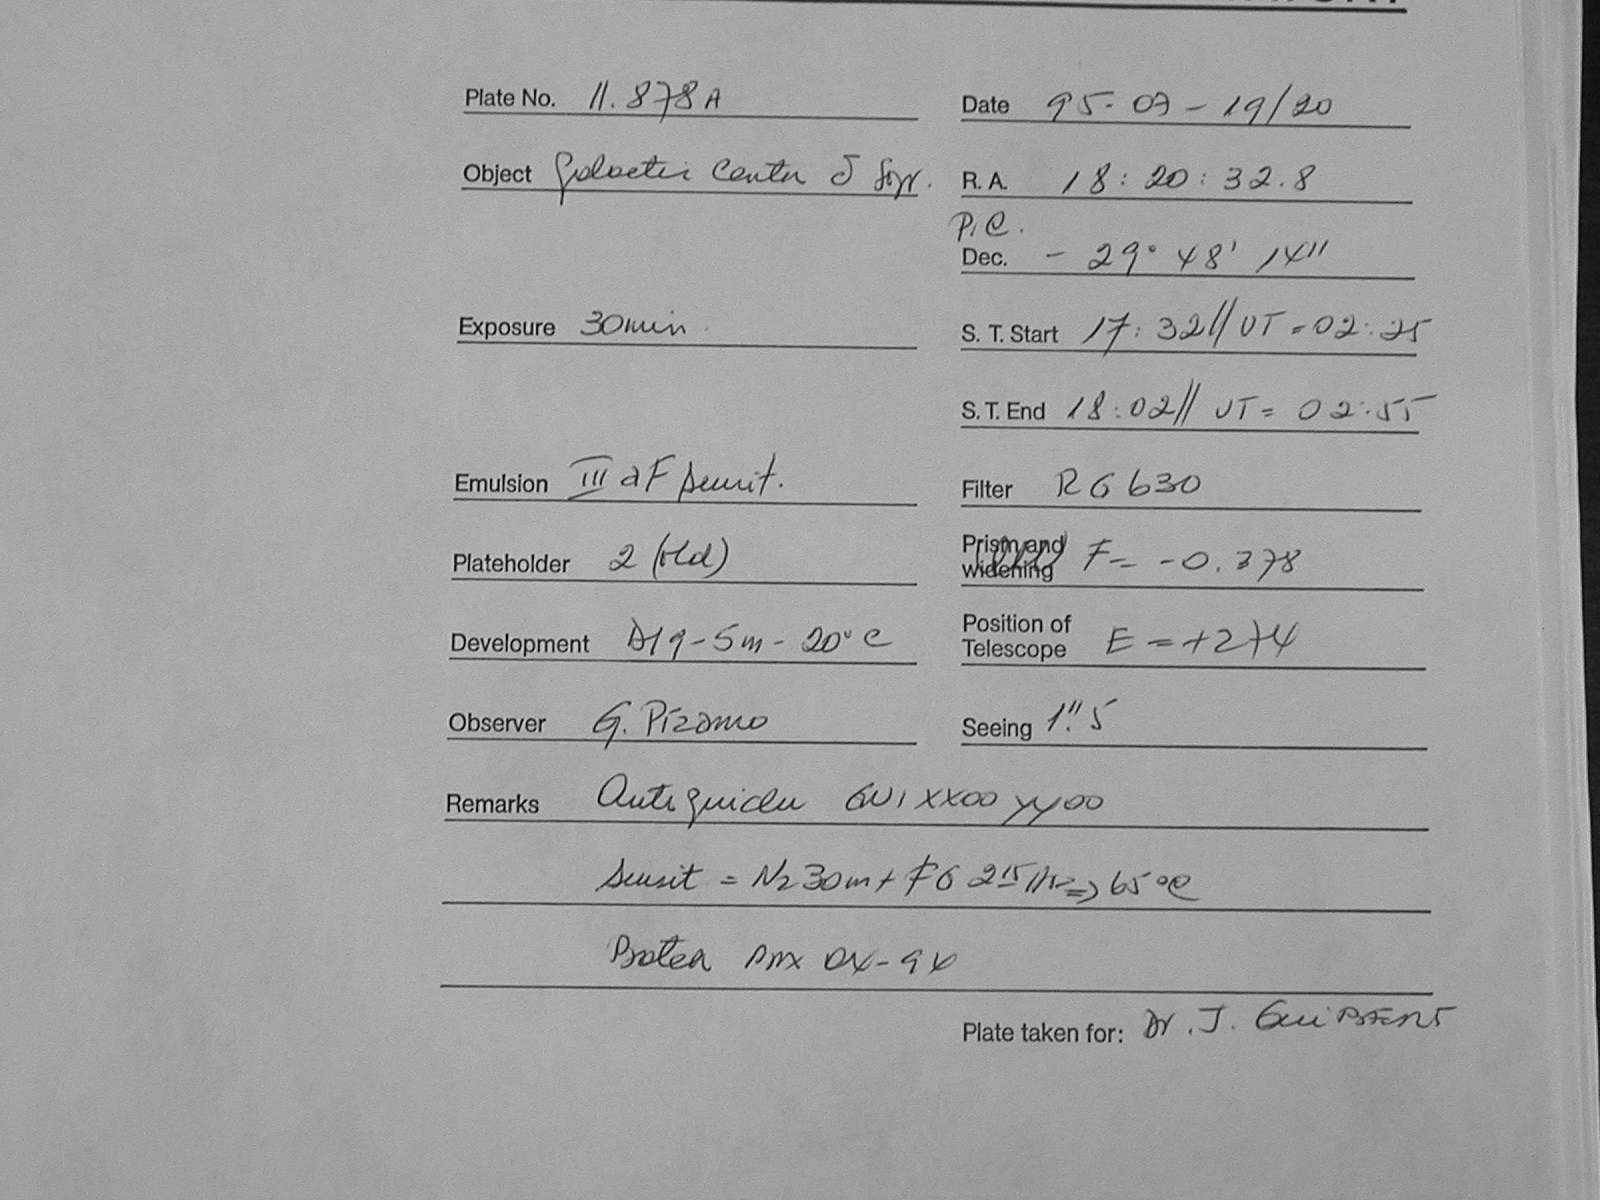 Plate No. 11.878A
Date 95-07-19/20
Object Galactic Center δ Sgr.
R. A. 18:20:32.8
P.C.
Dec. - 29° 48' 14"
Exposure 30min.
S. T. Start 17:32 // UT = 02:25
S. T. End 18:02 // UT = 02:55
Emulsion III aF sensit.
Filter RG 630
Plateholder 2 (old)
Prism and widening F = -0.378
Development D19-5m-20°C
Position of Telescope E = +274
Observer G. Pizarro
Seeing 1".5
Remarks Autoguider GUI XX00 YY00
Sensit = N2 30m + FG 215 Hr => 65°C
Plate taken for: Dr. J. Guibert